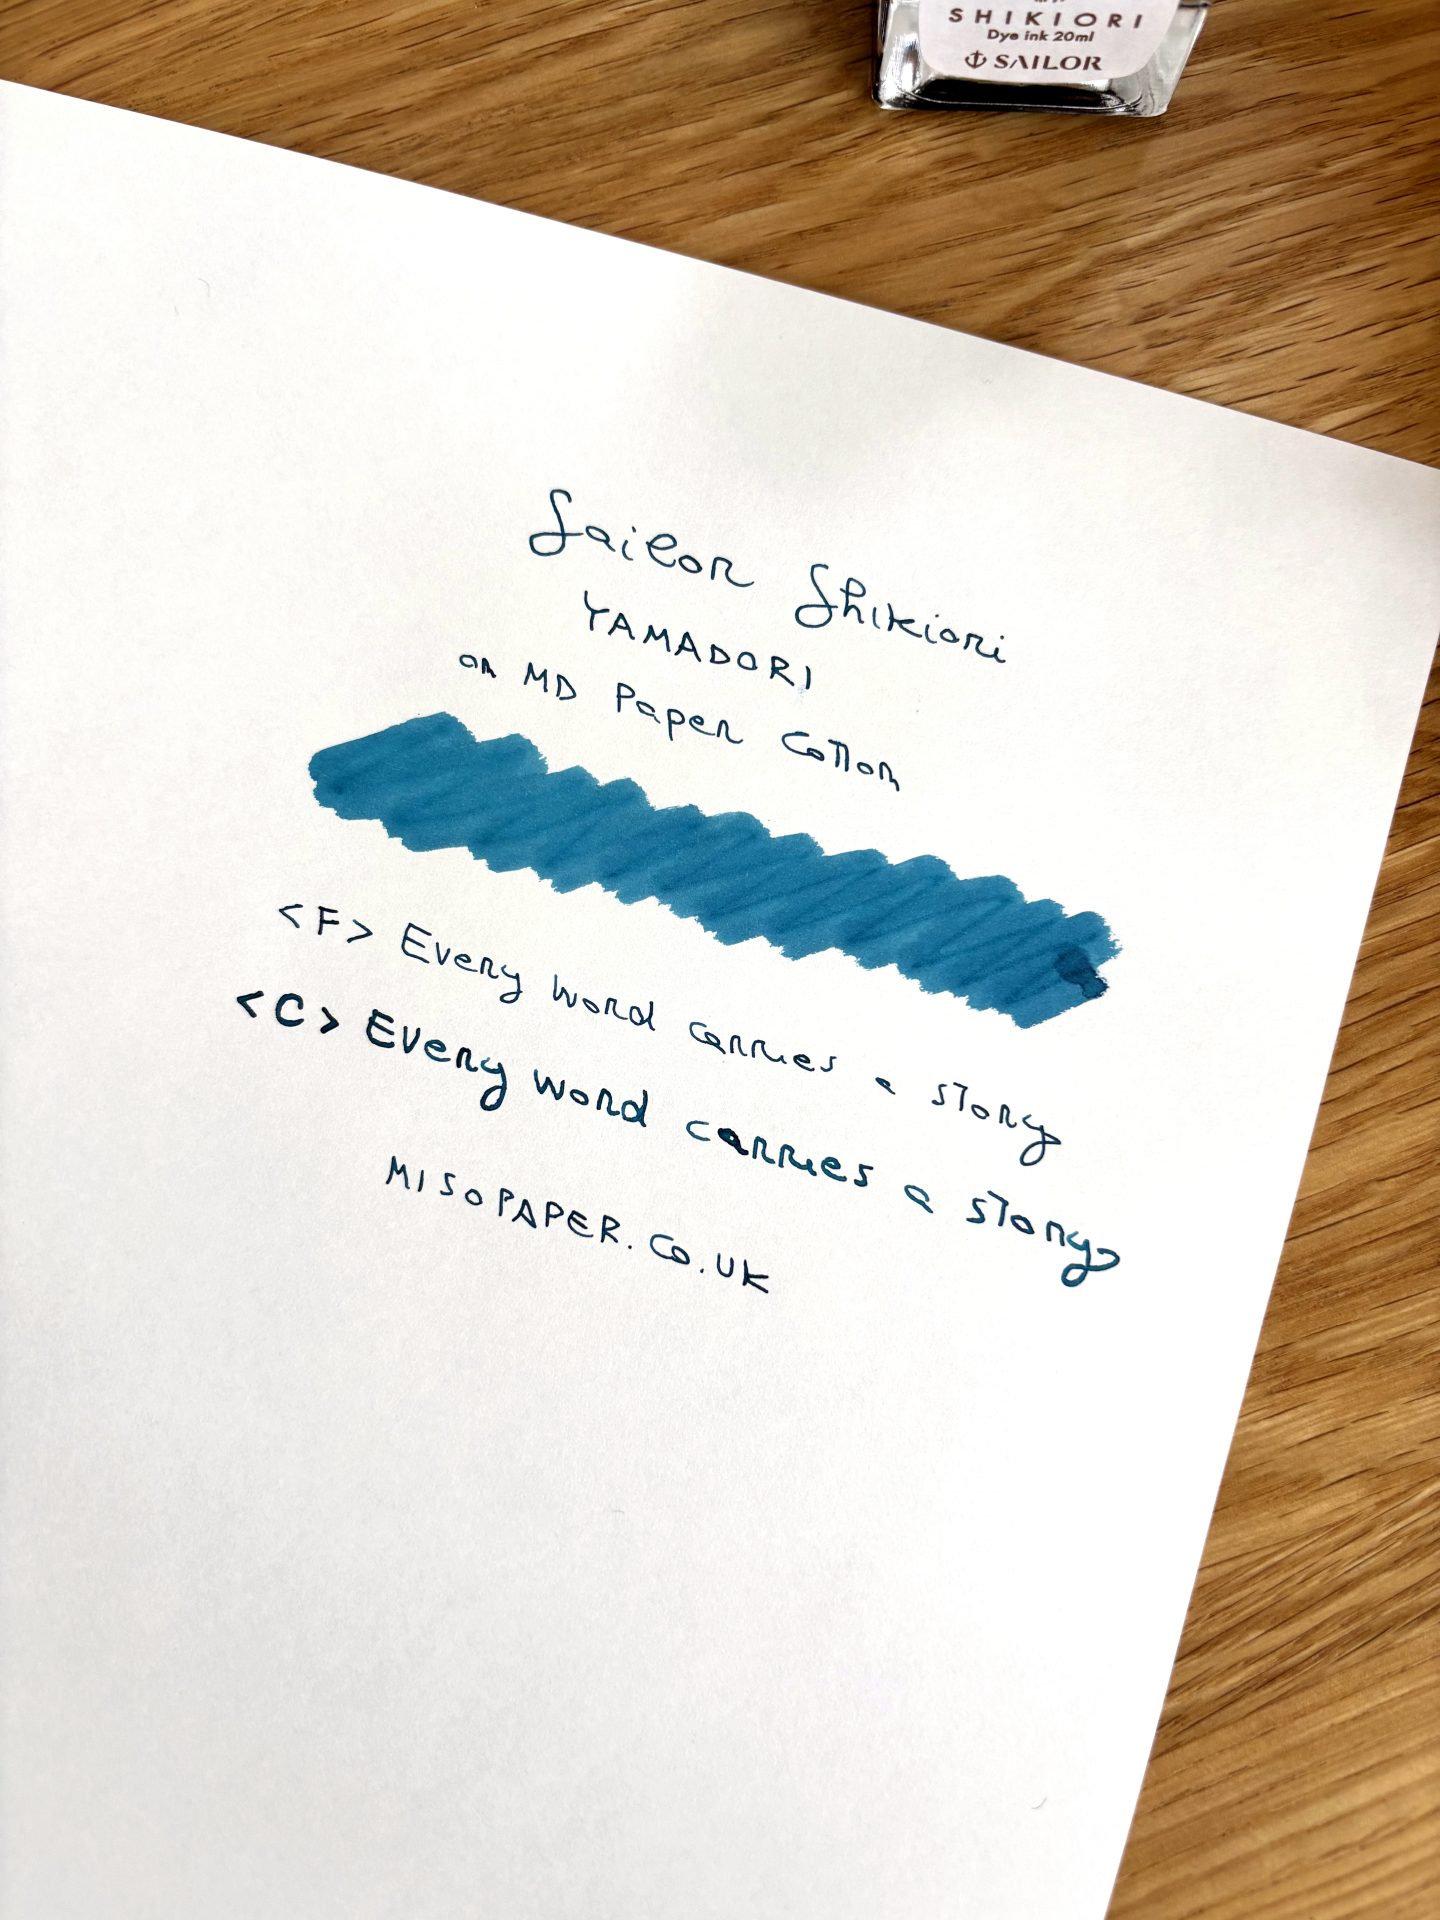 SHIKIORI
Dye ink 20ml
SAILOR
Sailor Shikiori
YAMADORI
on MD Paper Cotton
<F> Every word carries a story
<C> Every word carries a story
MISOPAPER.CO.UK